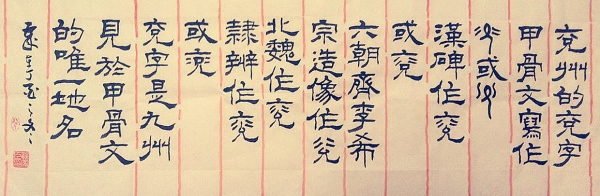 兖州的兖字
甲骨文寫作
或
漢碑作兖
或兖
六朝齊李希
宗造像作兖
北魏作兖
隸辨作兖
或兖
兖字是九州
見於甲骨文
的唯一地名